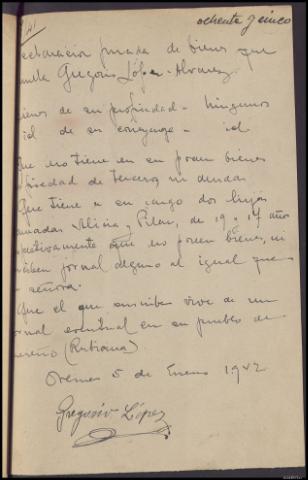 ochenta y cinco
eclaracion jurada de bienes que
Gregorio López-Alvarez
ienes de su propiedad - Ningunos
id de su conyuge - id
Que no tiene en su poder bienes
piedad de terceros ni deudas
Que tiene a su cargo dos hijas
madas Alicia y Pilar, de 19 y 17 años
pectivamente que no poseen bienes, ni
ciben jornal alguno al igual que
señora.
Que el que suscribe vive de un
rnal eventual en su pueblo de
(Rubiana)
Orense 5 de Enero 1942
Gregorio López